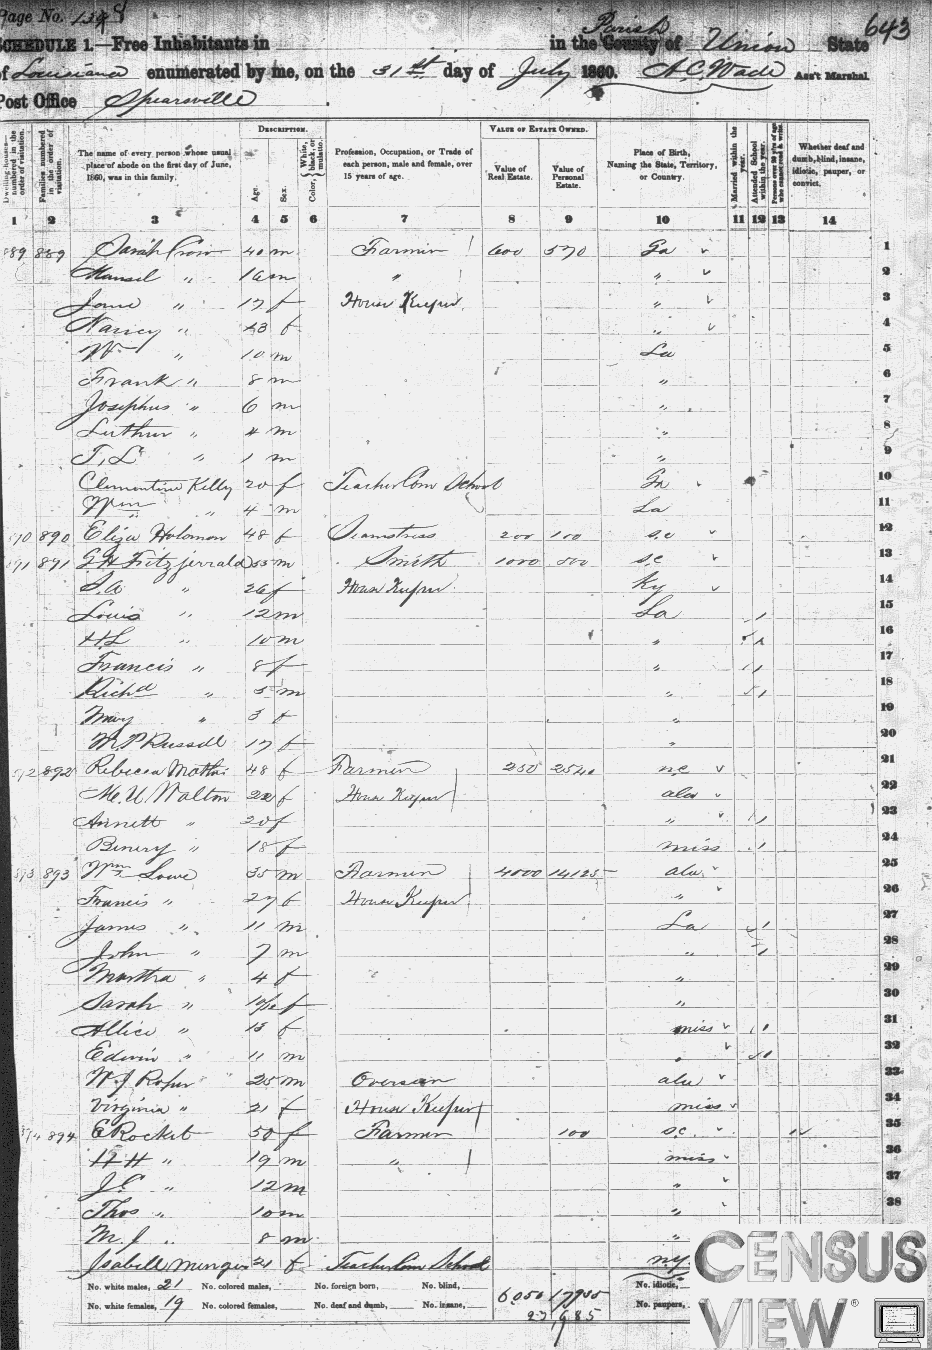 Page No. 138 643
SCHEDULE 1.—Free Inhabitants in in the County Parish of Union State
of Louisiana enumerated by me, on the 31st day of July 1860. A C Wade Ass't Marshal
Post Office Spearsville
Dwelling-houses numbered in the order of visitation. Families numbered in the order of visitation. The name of every person whose usual place of abode on the first day of June, 1860, was in this family. DESCRIPTION. Age. Sex. Color, White, black, or mulatto. Profession, Occupation, or Trade of each person, male and female, over 15 years of age. VALUE OF ESTATE OWNED. Value of Real Estate. Value of Personal Estate. Place of Birth, Naming the State, Territory, or Country. Married within the year. Attended School within the year. Persons over 20 y'rs of age who cannot read & write. Whether deaf and dumb, blind, insane, idiotic, pauper, or convict.
1 2 3 4 5 6 7 8 9 10 11 12 13 14
889 889 Sarah 40 m Farmer 600 570 Ga 1
Mansel " 16 m " " 2
Jane " 17 f House Keeper " 3
Nancy " 13 f " 4
Wm " 10 m La 5
Frank " 8 m " 6
Josephus " 6 m " 7
Luthur " 4 m " 8
T. L. " 1 m " 9
Clementine Kelly 20 f Teacher Com School Ga 10
Wm " 4 m La 11
890 890 Eliza Holomon 48 f Seamstress 200 100 S.C 12
891 891 G H Fitzjerrald 55 m Smith 1000 500 S.C 13
S. A " 26 f House Keeper Ky 14
Louis " 12 m La 1 15
H L " 10 m " 1 16
Francis " 8 f " 1 17
Richd " 5 m " 1 18
Mary " 3 f " 19
M. P. Russell 17 f " 20
892 892 Rebecca 48 f Farmer 250 2540 N.C 21
M. U Walton 22 f House Keeper ala 22
Annett " 20 f " 1 23
" 18 f miss 1 24
893 893 Wm Lowe 35 m Farmer 4000 14125 ala 25
Francis " 27 f House Keeper " 26
James " 11 m La 1 27
John " 7 m " 1 28
Martha " 4 f " 29
Sarah " 10/12 f " 30
Allice " 13 f miss 1 31
Edwin " 11 m " 1 32
W. J. Roper 25 m Overseer ala 33
Virginia " 21 f House Keeper miss 34
894 894 E Rocket 50 f Farmer 100 S.C. 35
H H " 19 m " miss 36
J. C " 12 m " 37
Thos " 10 m " 38
M. J. " 8 m "
Isabell 21 f Teacher Com School N.Y.
No. white males, 21 No. colored males, No. foreign born, No. blind, No. idiotic,
No. white females, 19 No. colored females, No. deaf and dumb, No. insane, 6050 17935 No. paupers,
23,985
CENSUS
VIEW®